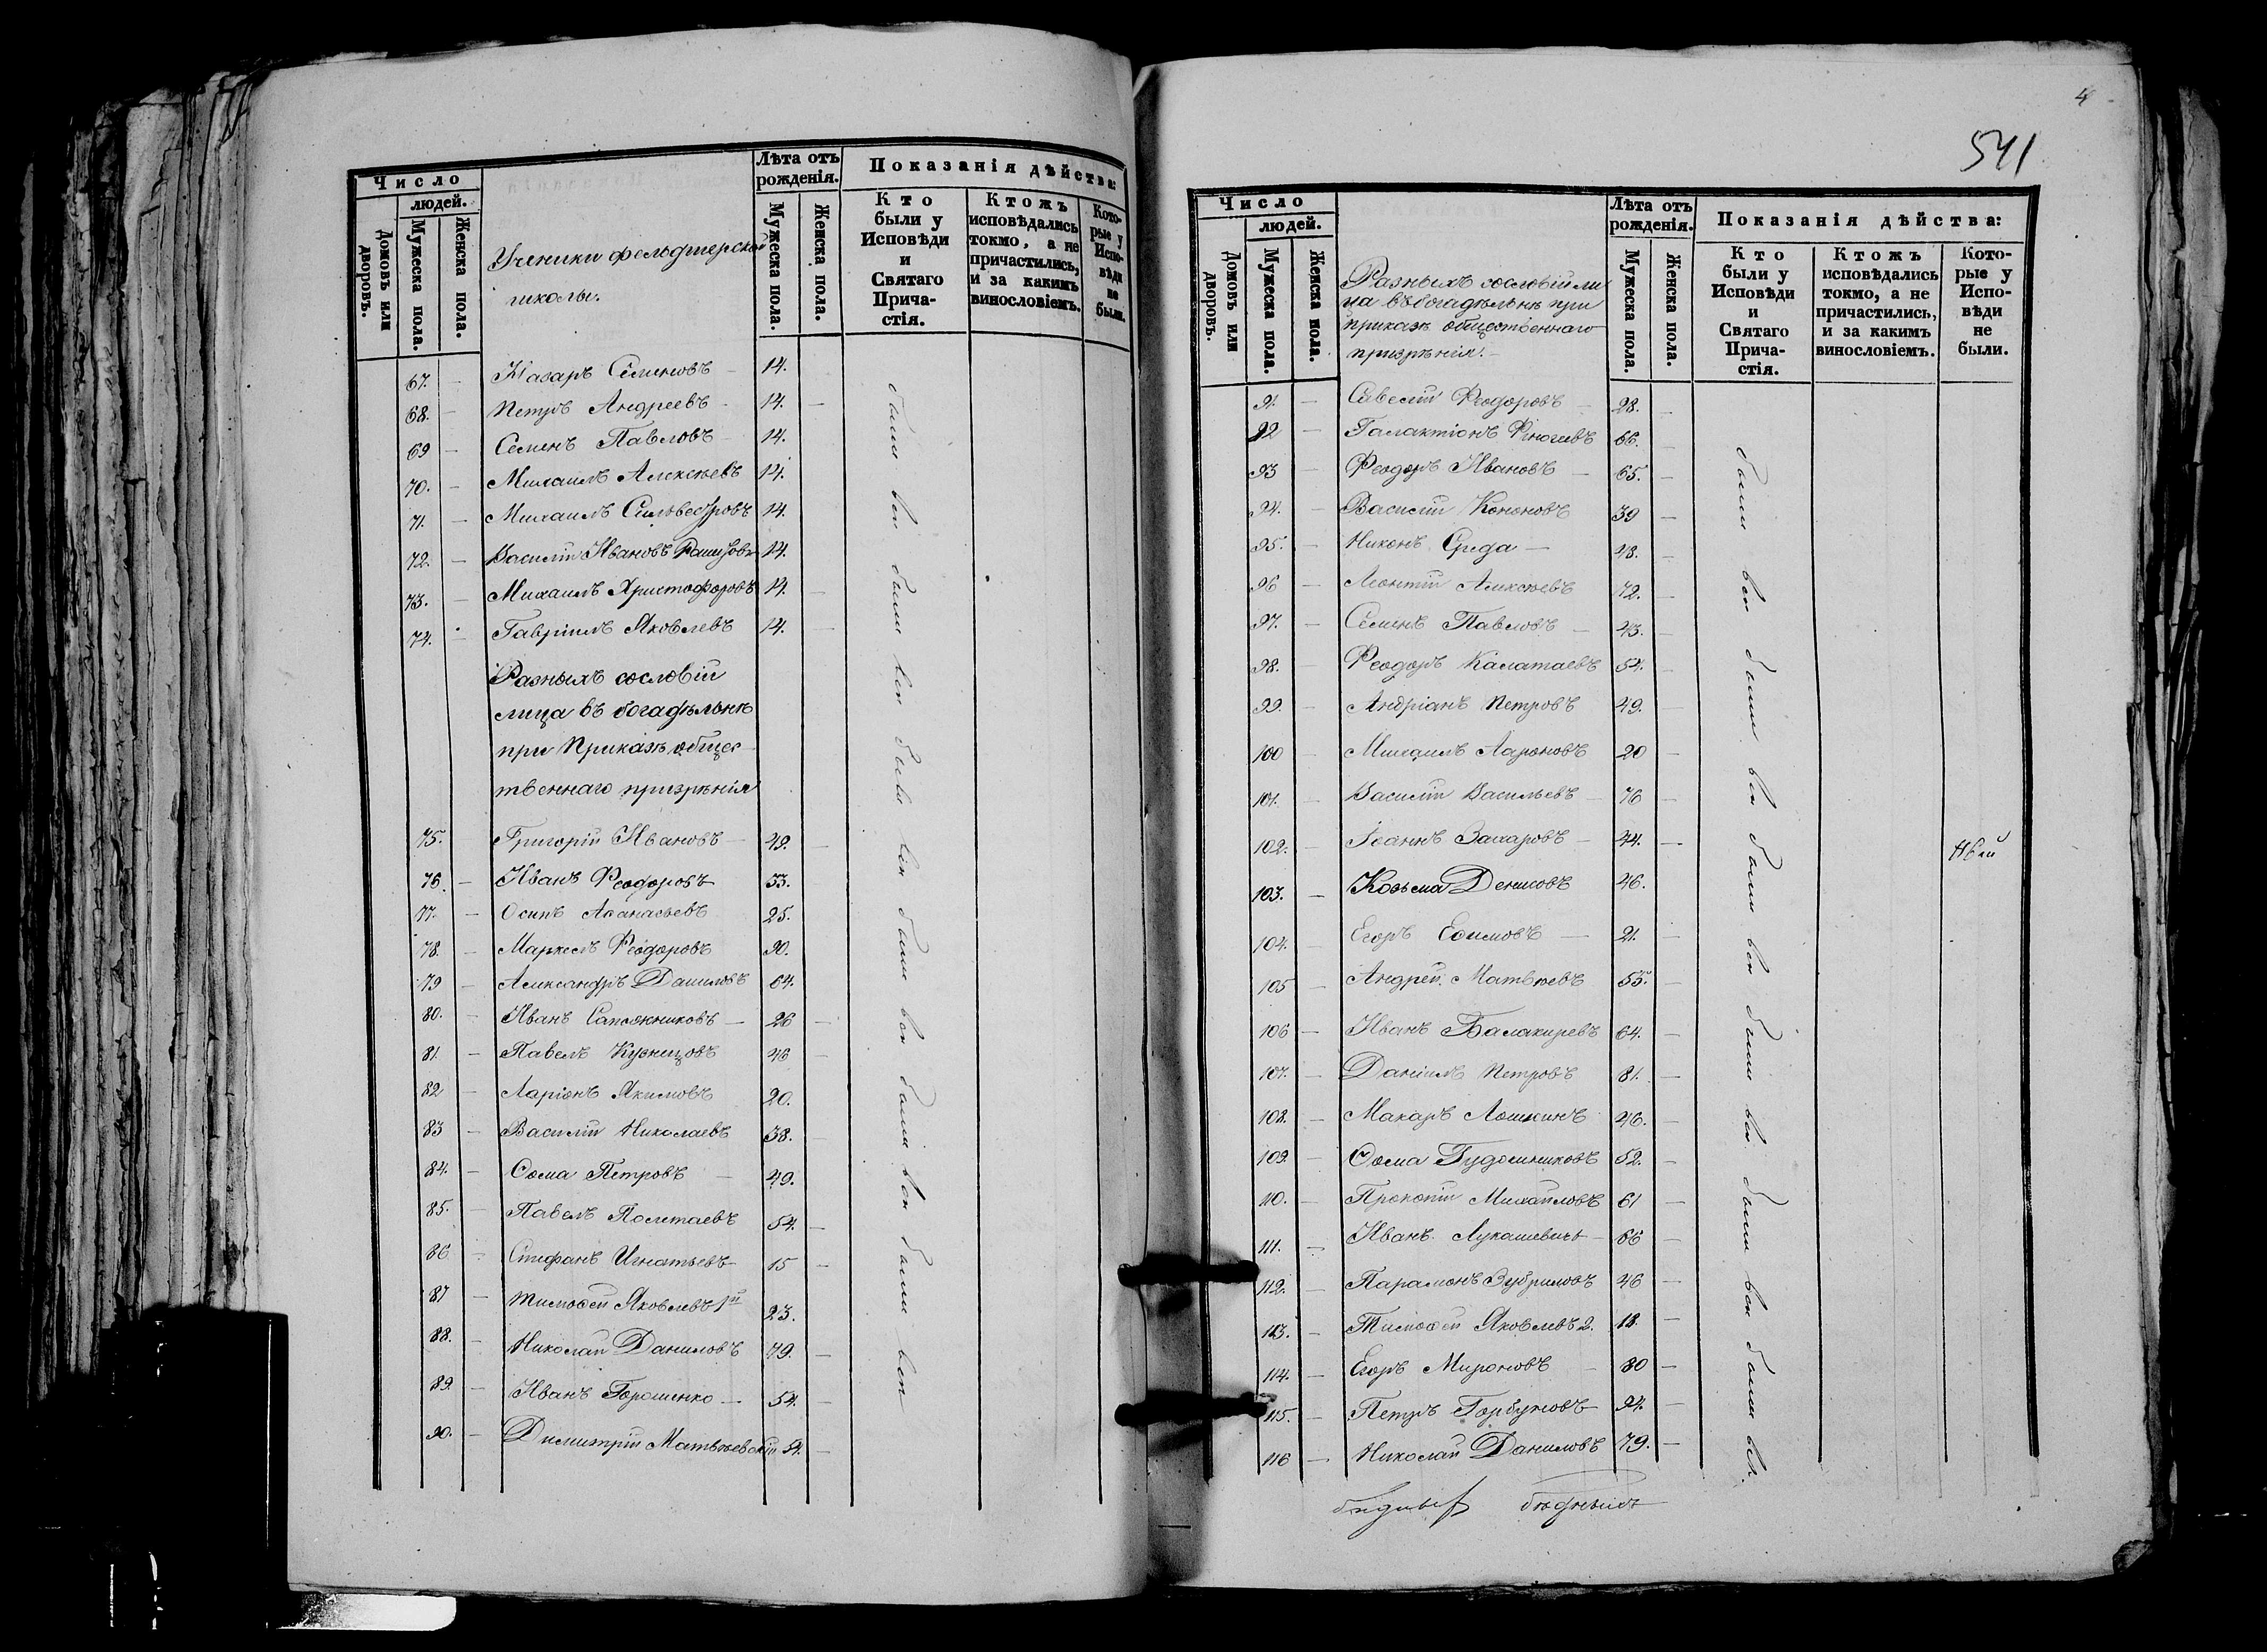 Число
людей.
Домовъ или дворовъ.
Мужеска пола.
Женска пола.
Ученики фельдшерской
школы.
Лѣта отъ
рожденія.
Мужеска пола.
Женска пола.
Показанія дѣйства:
Кто
были у
Исповѣди
и
Святаго
Прича-
стія.
Ктожъ
исповѣдались
токмо, а не
причастились,
и за какимъ
винословіемъ.
Кото-
рые у
Испо-
вѣди
не
были.
67. — Назаръ Семеновъ — 14.
68. — Петръ Андреевъ — 14. —
69 — Семенъ Павловъ — 14.
70. — Михаилъ Алексѣевъ 14.
71. — Михаилъ Сильвестровъ 14.
72. — Василій Ивановъ 14.
73. — Михаилъ Христофоровъ 14. —
74. — Гавріилъ Яковлевъ 14. —
Разныхъ сословій
лица въ богадѣльнѣ
при Приказѣ общес
твеннаго призрѣнія
75. — Григорій Ивановъ — 49. —
76. — Иванъ Феодоровъ 33.
77. — Осипъ Аѳанасьевъ 25.
78. — Маркелъ Феодоровъ 90.
79 — Александръ Даниловъ 64.
80. — Иванъ Сапожниковъ — 26 —
81. — Павелъ Кузнецовъ 46 —
82 — Ларіонъ Якимовъ 20.
83 — Василій Николаевъ 38. —
84. — Ѳома Петровъ — 49.
85. — Павелъ Полетаевъ 54. —
86 — Стефанъ Игнатьевъ 15 —
87 — Тимоѳей Яковлевъ 1й 23.
88. — Николай Даниловъ 79. —
89. — Иванъ Горошенко — 54. —
90. — Димитрій Матвѣевскій 54. —
были всѣ были всѣ были всѣ были всѣ были всѣ были всѣ
4
541
Число
людей.
Домовъ или дворовъ.
Мужеска пола.
Женска пола.
Разныхъ сословій ли
ца въ богадѣльнѣ при
приказѣ общественнаго
призрѣнія. —
Лѣта отъ
рожденія.
Мужеска пола.
Женска пола.
Показанія дѣйства:
Кто
были у
Исповѣди
и
Святаго
Прича-
стія.
Ктожъ
исповѣдались
токмо, а не
причастились,
и за какимъ
винословіемъ.
Кото-
рые у
Испо-
вѣди
не
были.
91. — Савелій Феодоровъ — 28. —
92 — Галактіонъ 66. —
93 — Феодоръ Ивановъ — 65. —
94. — Василій Кононовъ 39 —
95. — Никонъ Среда — 48. —
96 — Леонтій Алексѣевъ 72. —
97. — Семенъ Павловъ — 43. —
98. — Феодоръ Калатаевъ 54. —
99. — Андріанъ Петровъ 49. —
100 — Михаилъ Аароновъ 20 —
101. — Василій Васильевъ — 76 —
102. — Іоаннъ Захаровъ — 44. —
103. — Козьма Денисовъ 46.
104. — Егоръ Еѳимовъ — 21. —
105 — Андрей Матвѣевъ 55. —
106 — Иванъ Балакиревъ 64. —
107. — Даніилъ Петровъ 81. —
108. — Макаръ Лошкинъ 46. —
109. — Ѳома 52. —
110. — Прокопій Михайловъ 61 —
111. — Иванъ Лукашевичъ — 66 —
112. — Парамонъ Зубриловъ 46 —
113. — Тимоѳей Яковлевъ 2. 18. —
114. — Егоръ Мироновъ — 80 —
115. — Петръ Горбуновъ 94. —
116 — Николай Даниловъ 79. —
были всѣ были всѣ были всѣ были всѣ были всѣ были всѣ